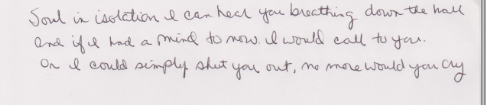 Soul in isolation I can hear you breathing down the hall
and if I had a mind to now I would call to you.
Or I could simply shut you out, no more would you cry